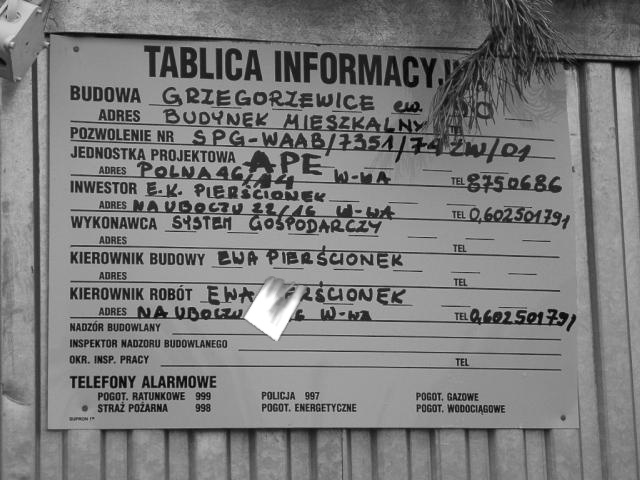 TABLICA INFORMACYJNA
BUDOWA GRZEGORZEWICE ew.
ADRES BUDYNEK MIESZKALNY
POZWOLENIE NR SPG-WAAB/7351/74 ZW/01
JEDNOSTKA PROJEKTOWA APE
ADRES POLNA 46/14 W-WA TEL 8750686
INWESTOR E.K. PIERŚCIONEK
ADRES NA UBOCZU 22/16 W-WA TEL 0,602501791
WYKONAWCA SYSTEM GOSPODARCZY
ADRES TEL
KIEROWNIK BUDOWY EWA PIERŚCIONEK
ADRES TEL
KIEROWNIK ROBÓT EWA PIERŚCIONEK
ADRES NA UBOCZU W-WA TEL 0,602501791
NADZÓR BUDOWLANY
INSPEKTOR NADZORU BUDOWLANEGO
OKR. INSP. PRACY TEL
TELEFONY ALARMOWE
POGOT. RATUNKOWE 999 POLICJA 997 POGOT. GAZOWE
STRAŻ POŻARNA 998 POGOT. ENERGETYCZNE POGOT. WODOCIĄGOWE